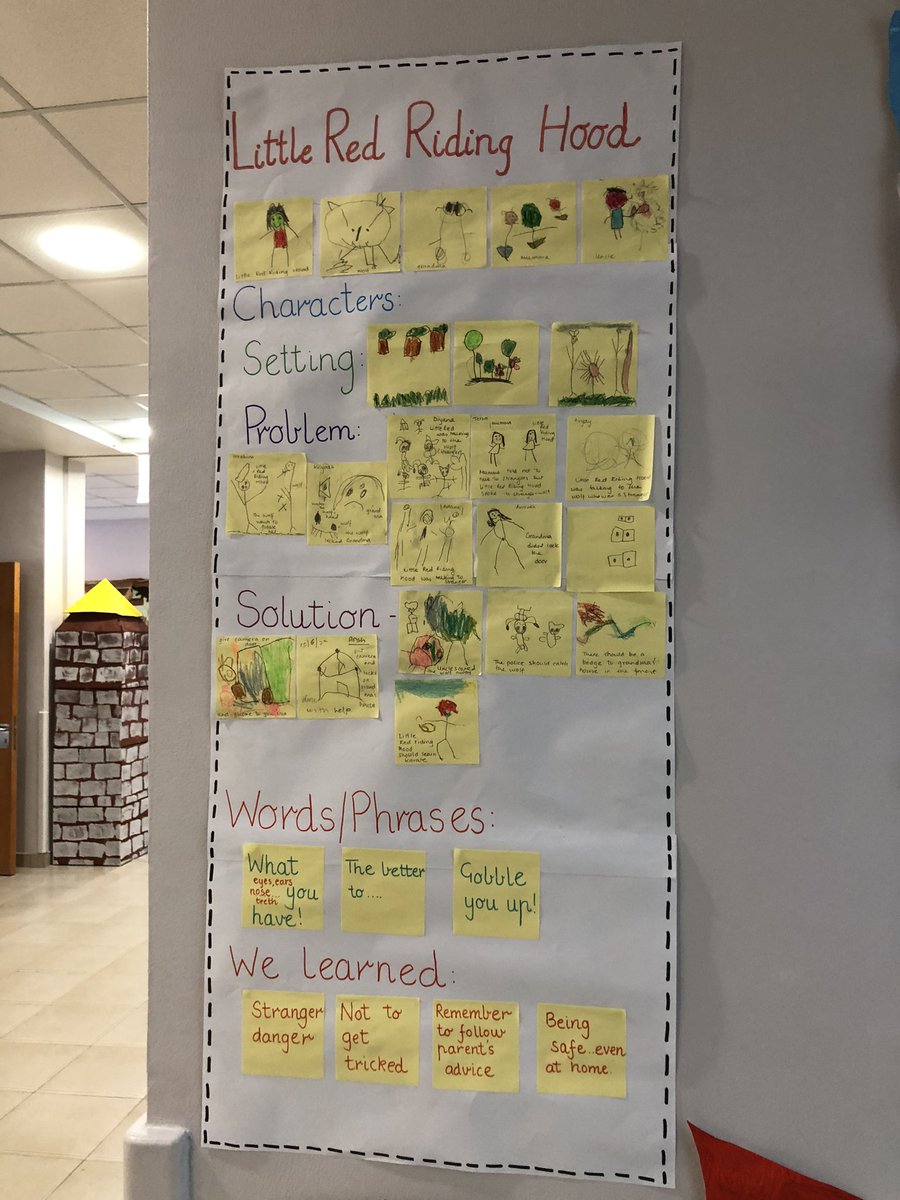 Little Red Riding Hood
Little Red Riding Hood
wolf
Grandma
Uncle
Characters:
Setting:
Problem:
Little
Red
Riding
Hood
wolf
The wolf
wants to
Little Red
was talking
to the
wolf
told not to
talk to strangers but
Little Red Riding Hood
spoke to
Little
Red
Riding
Hood
Little Red Riding Hood
was talking to the
wolf who was a stranger
grandma
wolf
the wolf
locked Grandma
Little Red Riding
Hood was talking to
stranger
Grandma
didnt lock
the
door
Solution -
Uncle saved
The police should catch
the wolf
There should be a
bridge to grandmas'
house in the forest
put camera on
door
put
camera
and
locks
on
grand
mas
house
done
with help
Little
Red riding
Hood
should learn
karate
Words/Phrases:
What
eyes, ears
nose... you
teeth
have!
The better
to....
Gobble
you up!
We learned:
Stranger
danger
Not to
get
tricked
Remember
to follow
parent's
advice
Being
safe...even
at home.